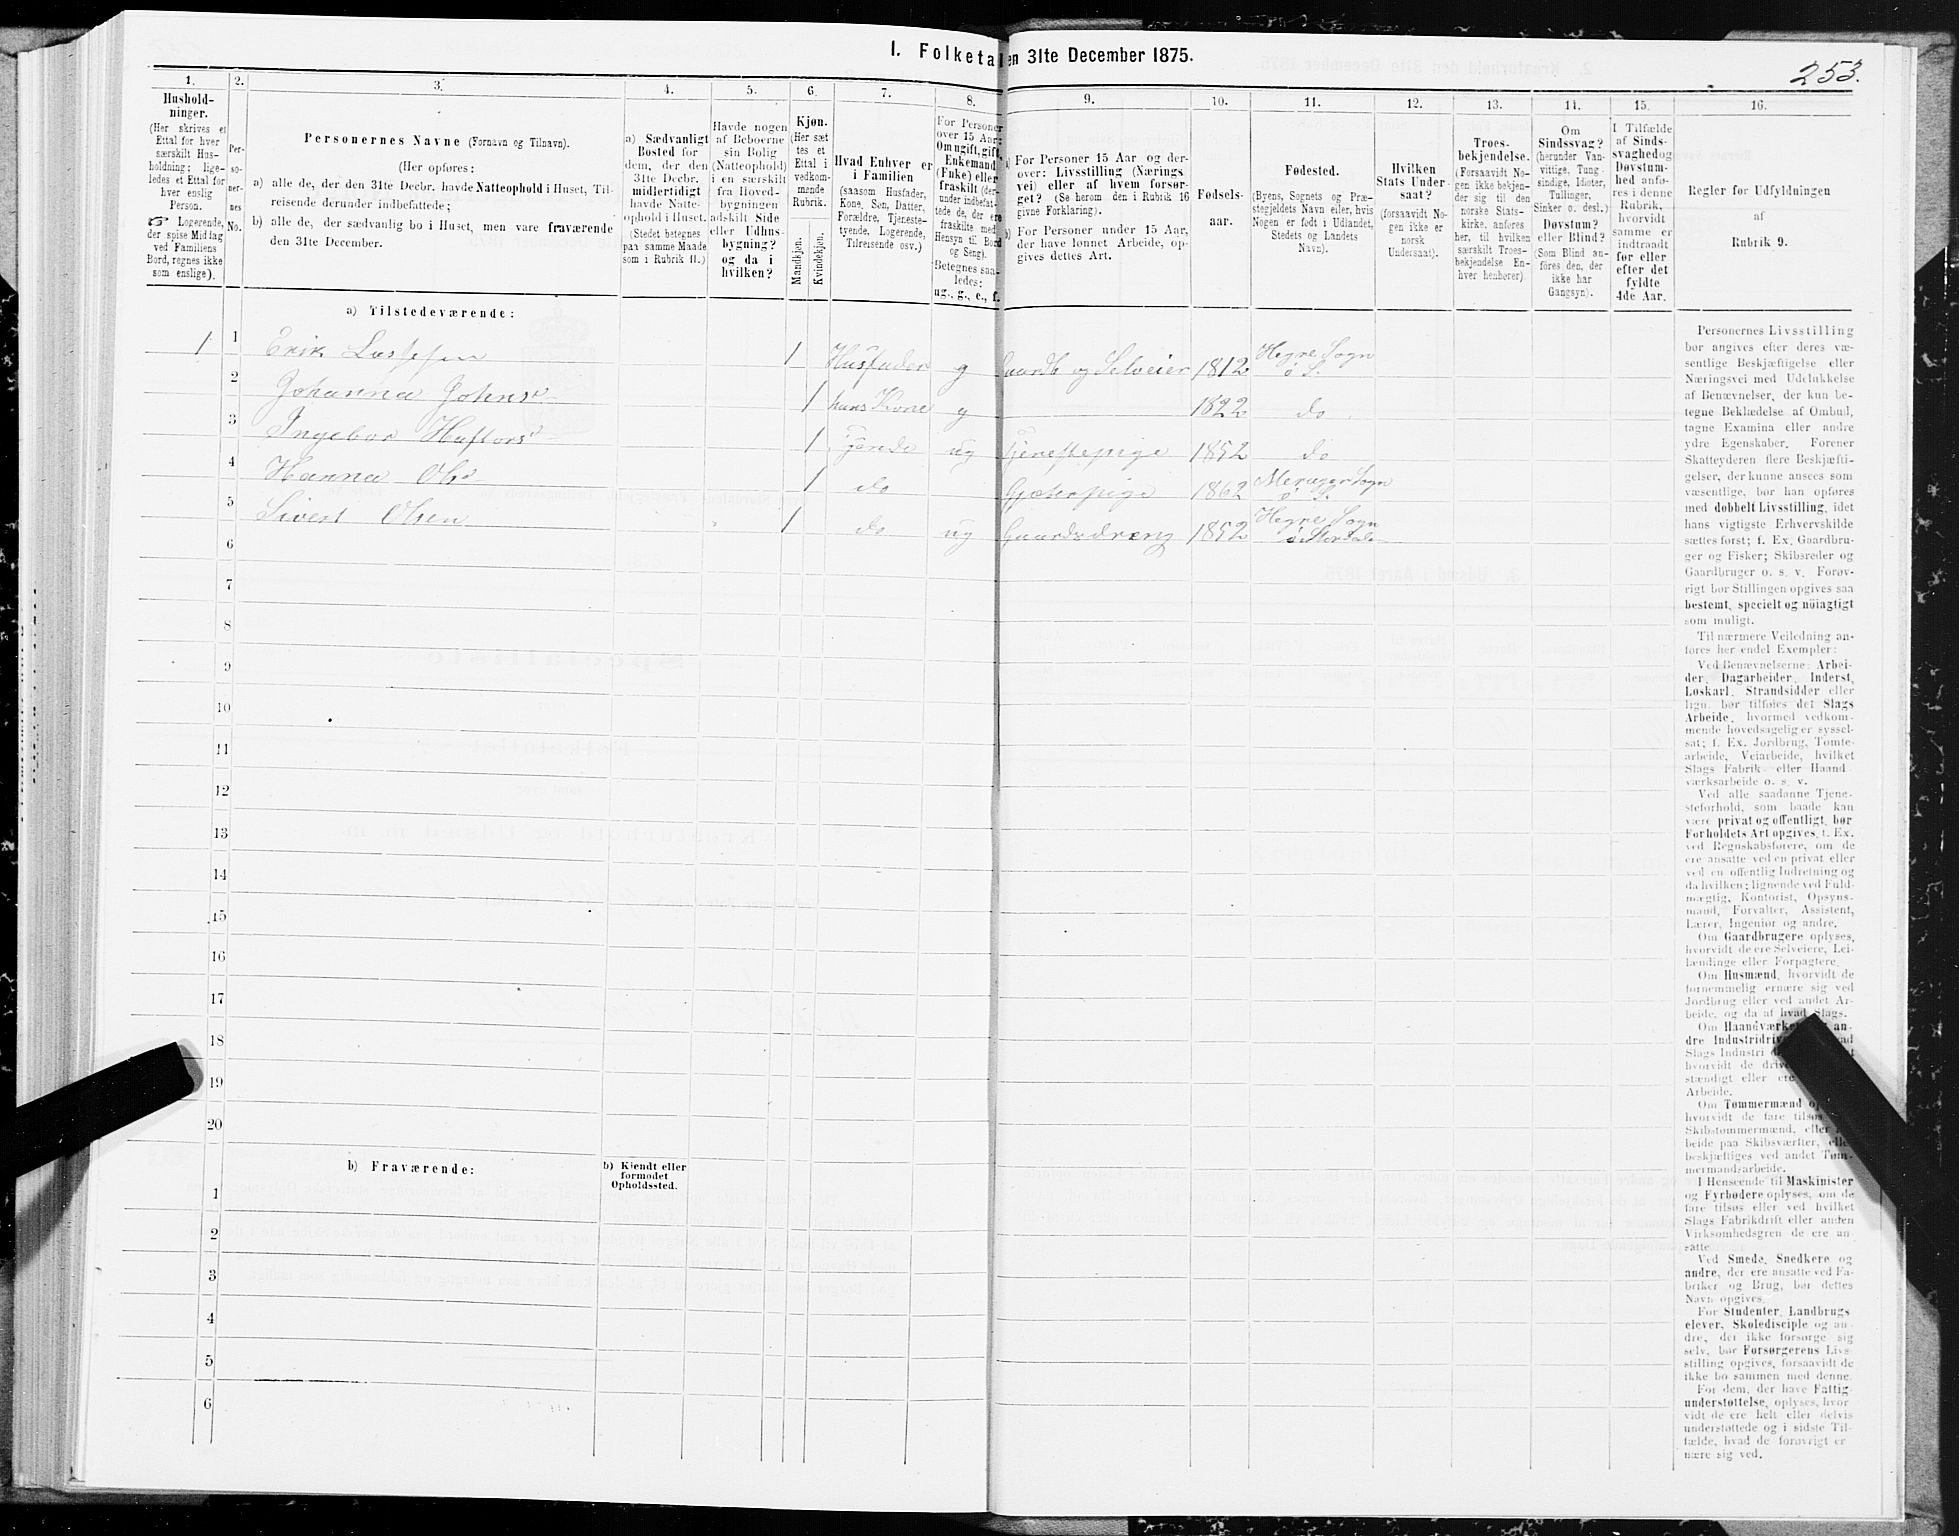 I. Folketal en 31te December 1875.
253.
1.
Hushold-
ninger.
(Her skrives et
Ettal for hver
særskilt Hus-
holdning; lige-
ledes et Ettal for
hver enslig
Person.
☞ Logerende,
der spise Middag
ved Familiens
Bord, regnes ikke
som enslige).
2.
Per-
so-
ner-
nes
No.
3.
Personernes Navne (Fornavn og Tilnavn).
(Her opføres:
a) alle de, der den 31te Decbr. havde Natteophold i Huset, Til-
reisende derunder indbefattede;
b) alle de, der sædvanlig bo i Huset, men vare fraværende
den 31te December.
4.
a) Sædvanligt
Bosted for
dem, der den
31te Decbr.
midlertidigt
havde Natte-
ophold i Huset.
(Stedet betegnes
paa samme Maade
som i Rubrik 11.)
5.
Havde nogen
af Beboerne
sin Bolig
(Natteophold)
i en særskilt
fra Hoved-
bygningen
adskilt Side
eller Udhus-
bygning?
og da i
hvilken?
6.
Kjøn.
(Her sæt
tes et
Ettal i
vedkom-
mende
Rubrik.
Mandkjøn.
Kvindekjøn.
7.
Hvad Enhver er
i Familien
(saasom Husfader,
Kone, Søn, Datter,
Forældre, Tjeneste-
tyende, Logerende,
Tilreisende osv.)
8.
For Personer
over 15 Aar:
Om ugift, gift,
Enkemand
(Enke) eller
fraskilt (der-
under indbefat-
tede de, der ere
fraskilte med
Hensyn til Bord
og Seng).
Betegnes saa-
ledes:
ug., g., e., f.
9.
a) For Personer 15 Aar og der-
over: Livsstilling (Nærings
vei) eller af hvem forsør-
get? (Se herom den i Rubrik 16
givne Forklaring).
b) For Personer under 15 Aar,
der have lønnet Arbeide, op-
gives dettes Art.
10.
Fødsels-
aar.
11.
Fødested.
(Byens, Sognets og Præ-
stegjeldets Navn eller, hvis
Nogen er født i Udlandet,
Stedets og Landets
Navn).
12.
Hvilken
Stats Under-
saat?
(forsaavidt No-
gen ikke er
norsk
Undersaat).
13.
Troes-
bekjendelse.
(Forsaavidt No-
gen ikke bekjen-
der sig til den
norske Stats-
kirke, anføres
her, til hvilken
særskilt Troes-
bekjendelse En-
hver henhører)
14.
Om
Sindssvag?
(herunder Van-
vittige, Tung-
sindige, Idioter,
Tullinger,
Sinker o. desl.)
Døvstum?
eller Blind?
(Som Blind an-
føres den, der
ikke har
Gangsyn).
15.
I Tilfælde
af Sinds-
svaghed og
Døvstum-
hed anfø-
res i denne
Rubrik,
hvorvidt
samme er
indtraadt
før eller
efter det
fyldte
4de Aar.
16.
Regler før Udfyldningen
af
Rubrik 9.
a) Tilstedeværende:
1 1 Erik Lassesen 1 Husfader g Gaardb og Selveier 1812 Hegre Sogn ø S.
2 Johanna Johnsd 1 hans Kone g 1822 do
3 Ingebor Haftorsd 1 Tjende ug Tjenestepige 1852 do
4 Hanna Olsd 1 do Gjæterpige 1862 Merager Sogn ø S.
5 Sivert Olsen 1 do ug Gaardsdreng 1852 Hegre Sogn ø Stördalen
6
7
8
9
10
11
12
13
14
15
16
17
18
19
20
b) Fraværende:
b) Kjendt eller
formodet
Opholdssted.
1
2
3
4
5
6
Personernes Livsstilling
bør angives efter deres væ-
sentlige Beskjæftigelse eller
Næringsvei med Udelukkelse
af Benævnelser, der kun be-
tegne Beklædelse af Ombud,
tagne Examina eller andre
ydre Egenskaber. Forener
Skatteyderen flere Beskjæfti-
gelser, der kunne ansees som
væsentlige, bør han opføres
med dobbelt Livsstilling, idet
hans vigtigste Erhvervskilde
sættes først; f. Ex. Gaardbru-
ger og Fisker; Skibsreder og
Gaardbruger o. s. v. Forøv-
rigt bør Stillingen opgives saa
bestemt, specielt og nöiagtigt
som muligt.
Til nærmere Veiledning an-
føres her endel Exempler:
Ved Benævnelserne: Arbei-
der, Dagarbeider, Inderst,
Løskarl, Strandsidder eller
lign. bør tilføies det Slags
Arbeide, hvormed vedkom-
mende hovedsagelig er syssel-
sat; f. Ex. Jordbrug, Tomte-
arbeide, Veiarbeide, hvilket
Slags Fabrik- eller Haand-
værksarbeide o. s. v.
Ved alle saadanne Tjene-
steforhold, som baade kan
være privat og offentligt, bør
Forholdets Art opgives, f. Ex.
ved Regnskabsførere, om de
ere ansatte ved en privat eller
ved en offentlig Indretning og
da hvilken; lignende ved Fuld-
mægtig, Kontorist, Opsyns-
mand, Forvalter, Assistent,
Lærer, Ingeniør og andre.
Om Gaardbrugere oplyses,
hvorvidt de ere Selveiere, Lei-
lændinge eller Forpagtere.
Om Husmænd, hvorvidt de
fornemmelig ernære sig ved
Jordbrug eller ved andet Ar-
beide, og da af hvad Slags.
Om Haandværke an-
dre Industridriv ad
Slags Industri t
hvorvidt de driv
stændigt eller ere
Arbeide.
Om Tømmermænd op
hvorvidt de fare tilsøs
Skibstømmermænd, eller
beide paa Skibsværfter, elle
beskjæftiges ved andet Tøm-
mermandsarbeide.
I Henseende til Maskinister
og Fyrbødere oplyses, om de
fare tilsøs eller ved hvilket
Slags Fabrikdrift eller anden
Virksomhedsgren de ere an-
satte.
Ved Smede, Snedkere og
andre, der ere ansatte ved Fa-
briker og Brug, bør dettes
Navn opgives.
For Studenter, Landbrugs
elever, Skoledisciple og an-
dre, der ikke forsørge sig
selv, bør Forsørgerens Livs-
stilling opgives, forsaavidt de
ikke bo sammen med denne.
For dem, der have Fattig-
understøttelse, oplyses, hvor
vidt de ere helt eller delvis
understøttede og i sidste Til-
fælde, hvad de forøvrigt er
nære sig ved.